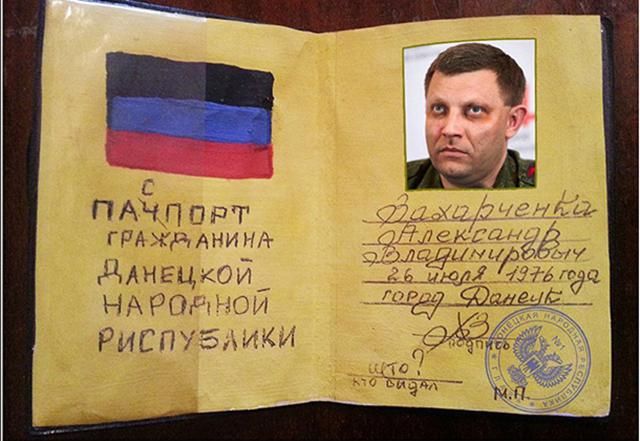 С
ПАЧПОРТ
ГРАЖДАНИНА
ДАНЕЦКОЙ
НАРОДНОЙ
РИСПУБЛИКИ
Захарченка
Александр
Владимировыч
26 июля 1976 года
город Данецк
ХЗ
подпись
ШТО?
КТО ВИДАЛ
М.П.
ДОНЕЦКАЯ НАРОДНАЯ РЕСПУБЛИКА
№1